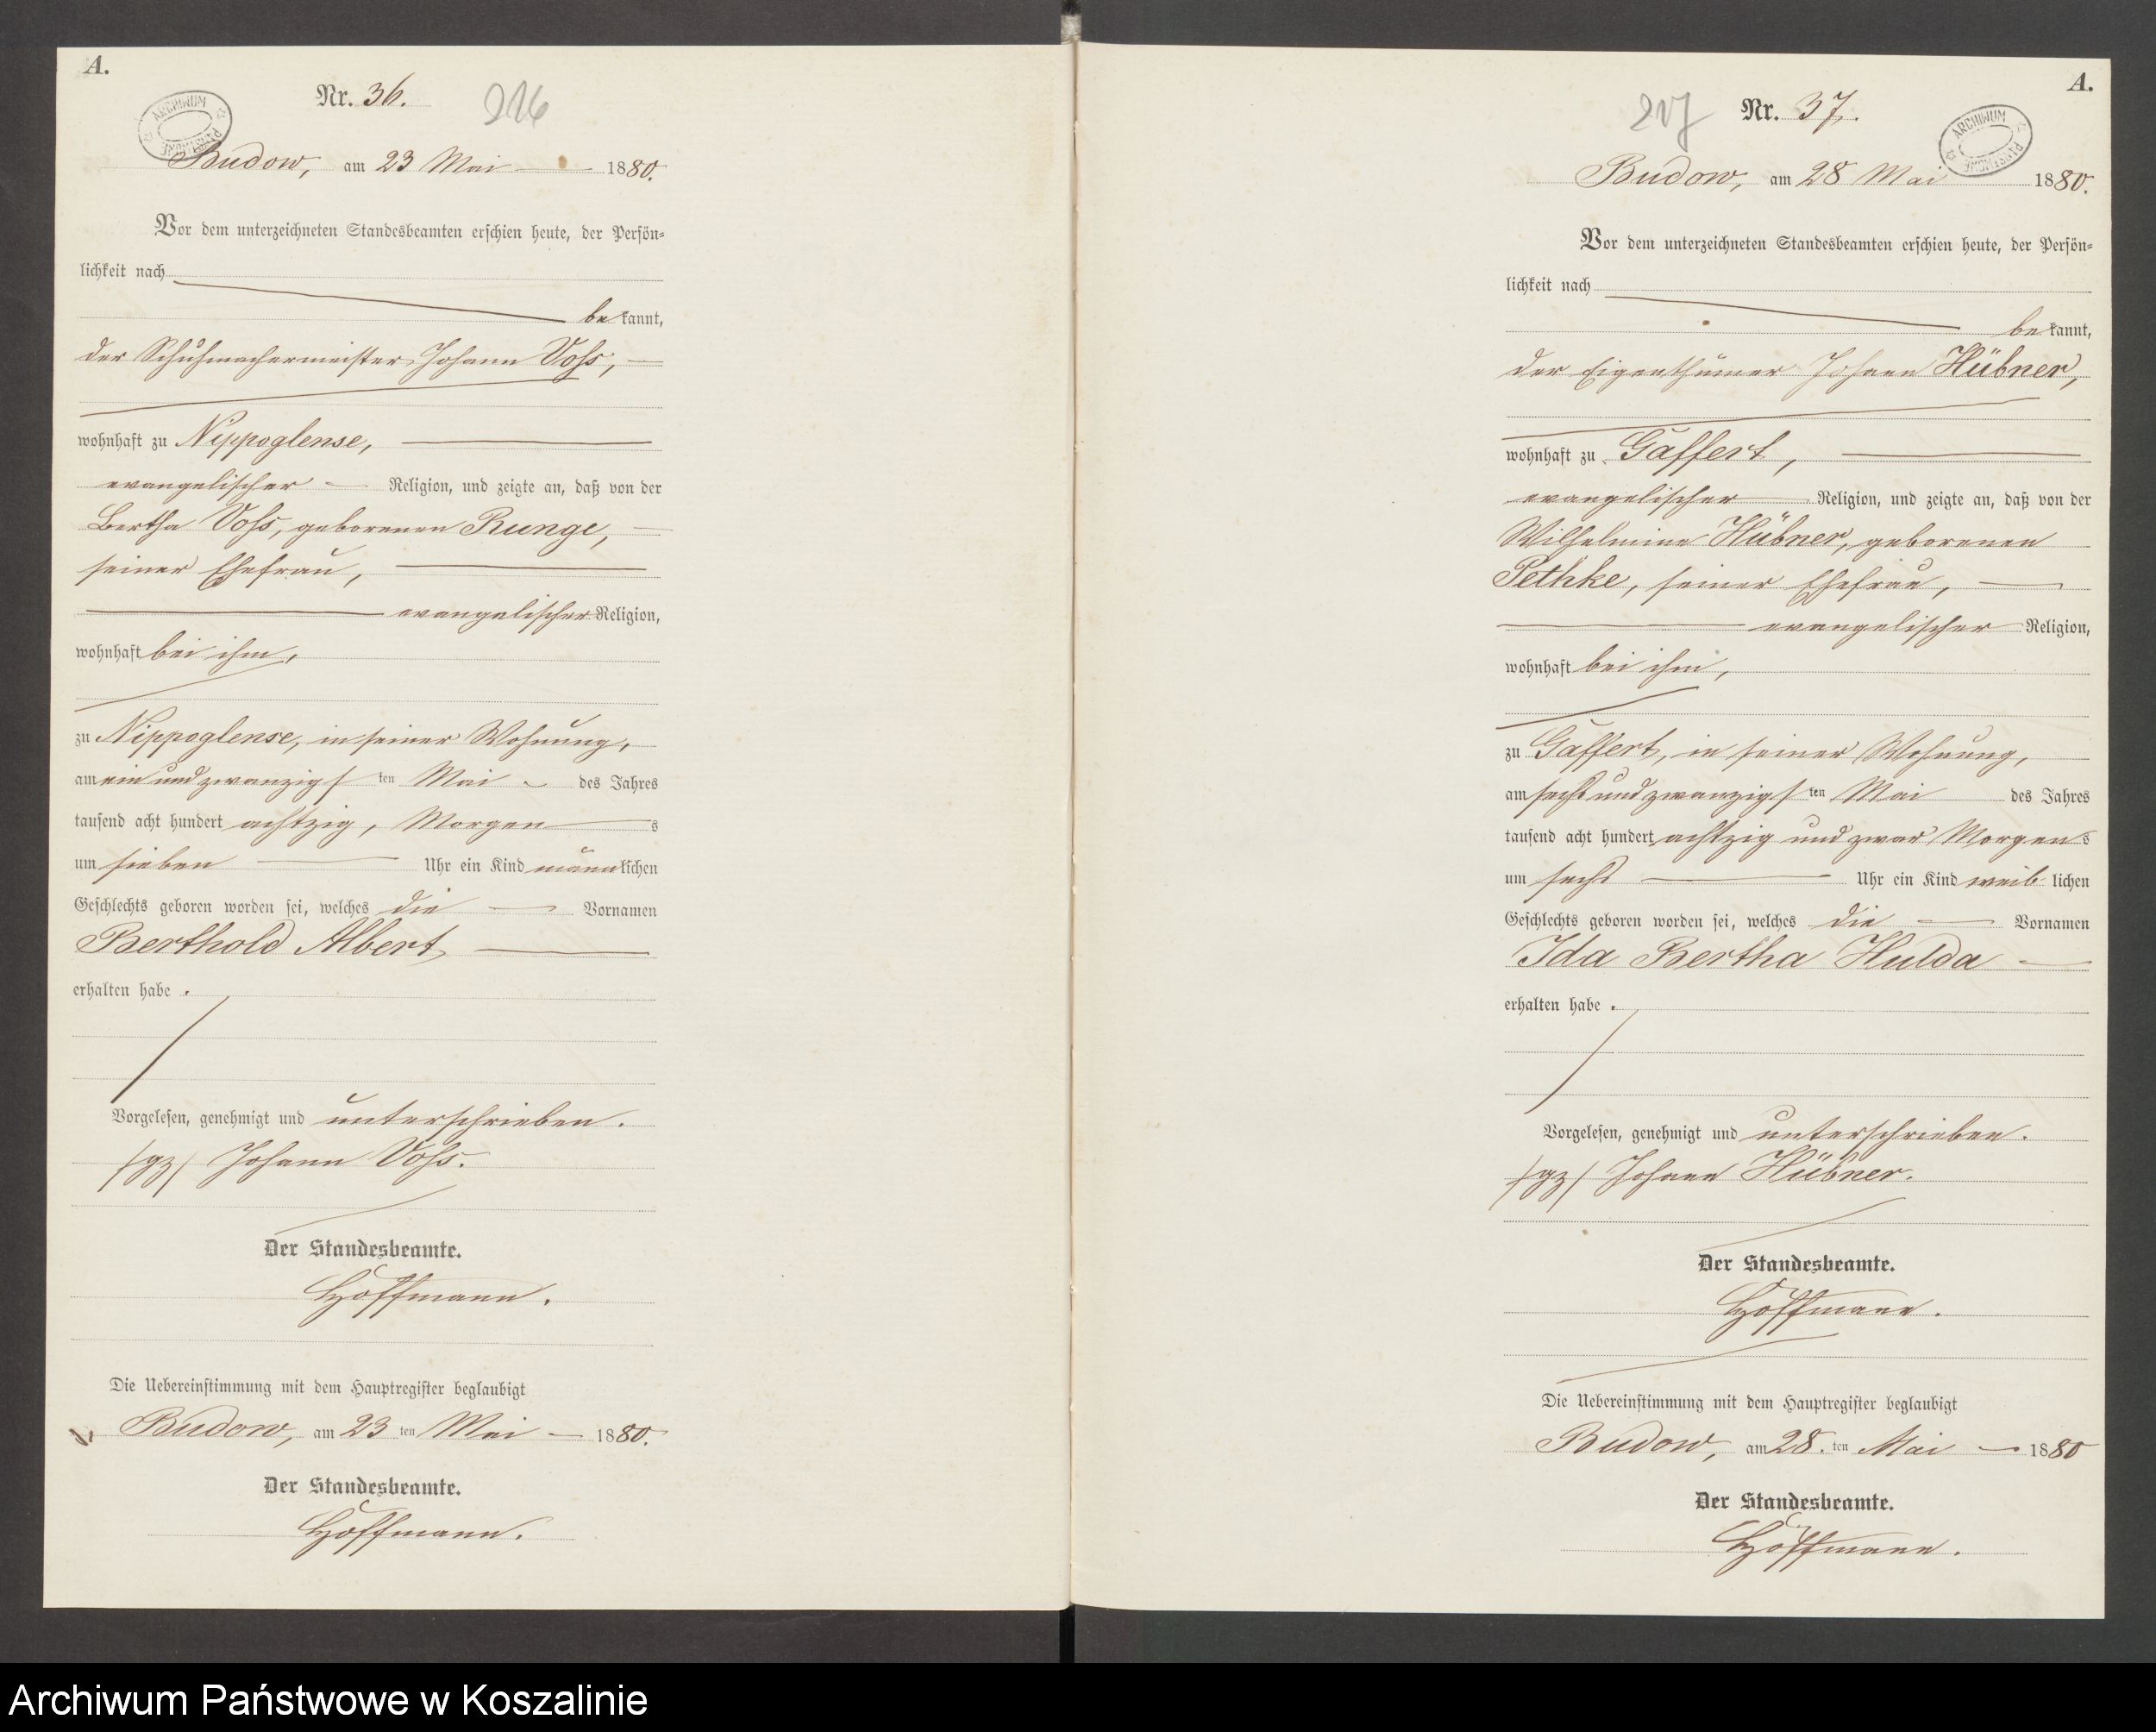 A.
Nr. 36. 216
ARCHIWUM PAŃSTWOWE
Budow, am 23 Mai 1880.
Vor dem unterzeichneten Standesbeamten erschien heute, der Persön-
lichkeit nach
bekannt,
der Schuhmachermeister Johann Vohs,
wohnhaft zu Nippoglense,
evangelischer Religion, und zeigte an, daß von der
Bertha Vohs, geborenen Runge,
seiner Ehefrau,
evangelischer Religion,
wohnhaft bei ihm,
zu Nippoglense, in seiner Wohnung,
am ein und zwanzigsten Mai des Jahres
tausend acht hundert achtzig, Morgens
um sieben Uhr ein Kind männlichen
Geschlechts geboren worden sei, welches die Vornamen
Berthold Albert
erhalten habe.
Vorgelesen, genehmigt und unterschrieben.
/gz/ Johann Vohs.
Der Standesbeamte.
Hoffmann.
Die Uebereinstimmung mit dem Hauptregister beglaubigt
Budow, am 23 ten Mai 1880.
Der Standesbeamte.
Hoffmann.
A.
217 Nr. 37.
ARCHIWUM PAŃSTWOWE
Budow, am 28 Mai 1880.
Vor dem unterzeichneten Standesbeamten erschien heute, der Persön-
lichkeit nach
bekannt,
der Eigenthümer Johann Hübner,
wohnhaft zu Gaffert,
evangelischer Religion, und zeigte an, daß von der
Wilhelmine Hübner, geborenen
Pethke, seiner Ehefrau,
evangelischer Religion,
wohnhaft bei ihm,
zu Gaffert, in seiner Wohnung,
am sechs und zwanzigsten Mai des Jahres
tausend acht hundert achtzig und zwar Morgens
um sechs Uhr ein Kind weiblichen
Geschlechts geboren worden sei, welches die Vornamen
Ida Bertha Hulda
erhalten habe.
Vorgelesen, genehmigt und unterschrieben.
/gz/ Johann Hübner.
Der Standesbeamte.
Hoffmann.
Die Uebereinstimmung mit dem Hauptregister beglaubigt
Budow, am 28. ten Mai 1880
Der Standesbeamte.
Hoffmann.
Archiwum Państwowe w Koszalinie